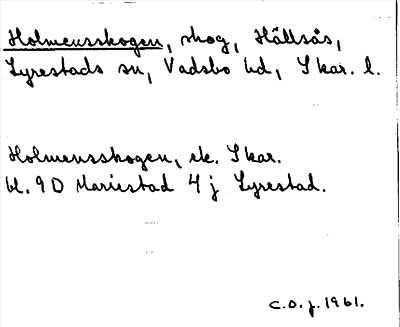 Holmensskogen, skog, Hällsås,
Lyrestads sn, Vadsbo hd, Skar. l.
Holmensskogen, ek. Skar.
bl. 9D Mariestad 4j Lyrestad.
C.O.J. 1961.